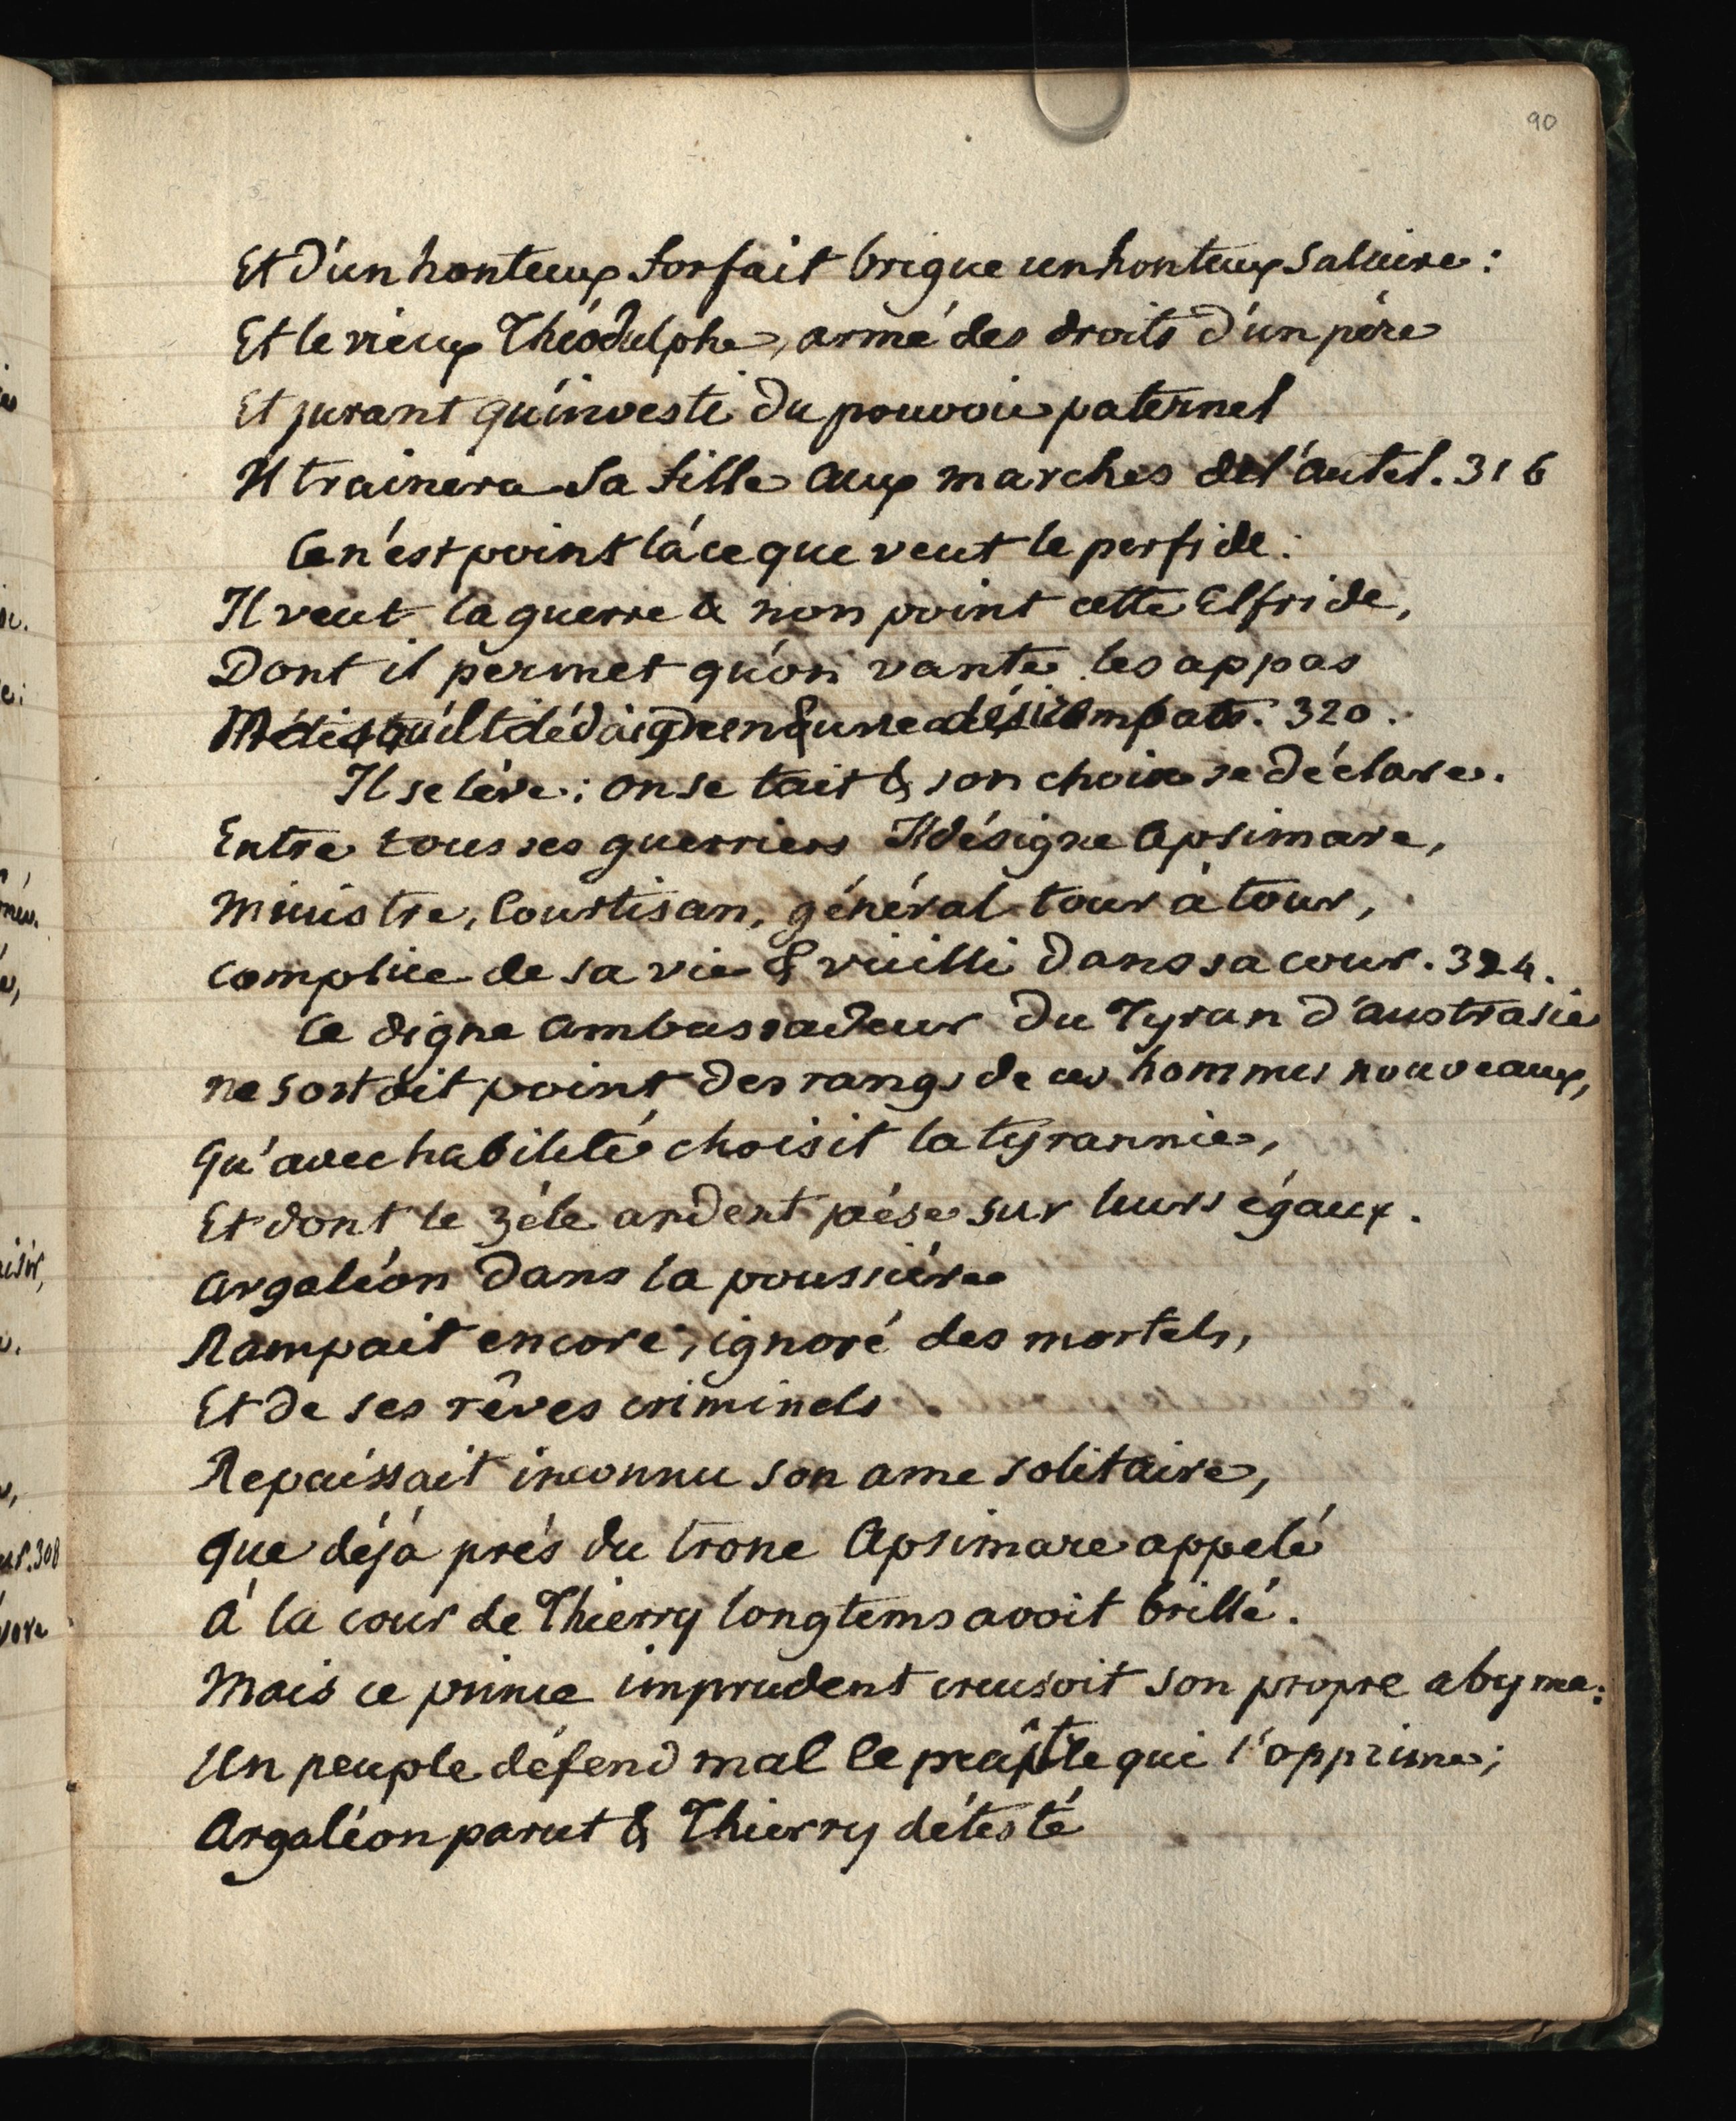 90
Et d'un honteux forfait brigue un honteux salaire:
Et le vieux Théodulphe, armé des droits d'un père
Et jurant qu'investi du pouvoir paternel
Il trainera sa fille aux marches de l'autel. 316
Ce n'est point là ce que veut le perfide:
Il veut la guerre & non point cette Elfride,
Dont il permet qu'on vante les appas
320.
Il se lève: on se tait & son choix se déclare.
Entre tous ses guerriers Il désigne Apsimare,
Ministre, Courtisan, général tour à tour,
complice de sa vie & vieilli dans sa cour. 324.
Ce digne Ambassadeur du Tyran d'Austrasie
ne sortoit point des rangs de ces hommes nouveaux,
Qu'avec habileté choisit la tyrannie,
Et dont le zèle ardent pèse sur leurs égaux.
Argaléon dans la poussière
Rampait encore, ignoré des mortels,
Et de ses rêves criminels
Repaissait inconnu son ame solitaire,
Que déjà près du trone Apsimare appelé
à la cour de Thierry longtems avoit brillé.
Mais ce prince imprudent creusoit son propre abyme:
Un peuple défend mal le qui l'opprime;
Argaléon parut & Thierry détesté